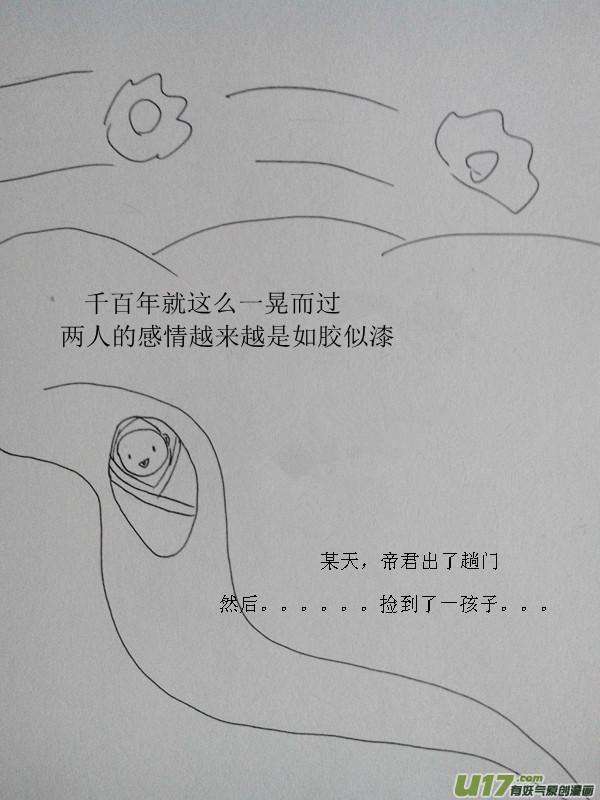 千百年就这么一晃而过
两人的感情越来越是如胶似漆
某天，帝君出了趟门
然后。。。。。。捡到了一孩子。。。
U17.com
有妖气原创漫画